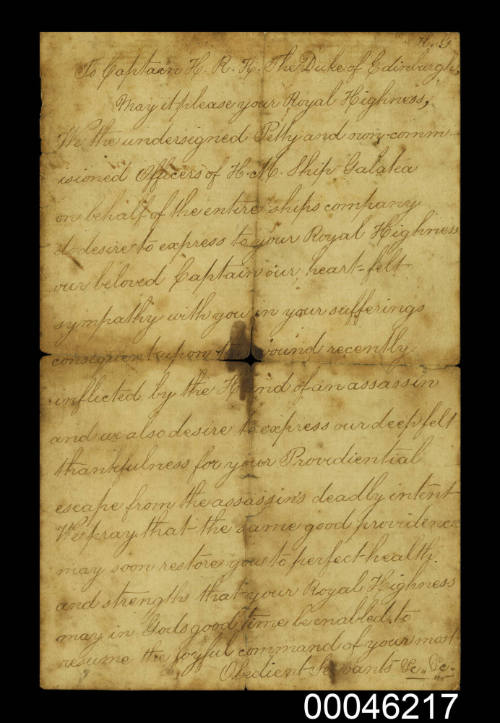 To Captain H. R. H. The Duke of Edinburgh,
May it please your Royal Highness,
We the undersigned Petty and non-comm-
isioned Officers of H. M. Ship Galatea
on behalf of the entire ships company
desire to express to your Royal Highness
our beloved Captain our heart-felt
sympathy with you in your sufferings
consiquent upon wound recently
inflected by the Hand of an assassin
and we also desire to express our deep felt
thankfulness for your Providiential
escape from the assassins deadly intent
We pray that the same good providence
may soon restore you to perfect health.
and strengths that your Royal Highness
may in Gods good time be enabled to
resume the joyful command of your most
Obedient Servants &c. &c.
00046217